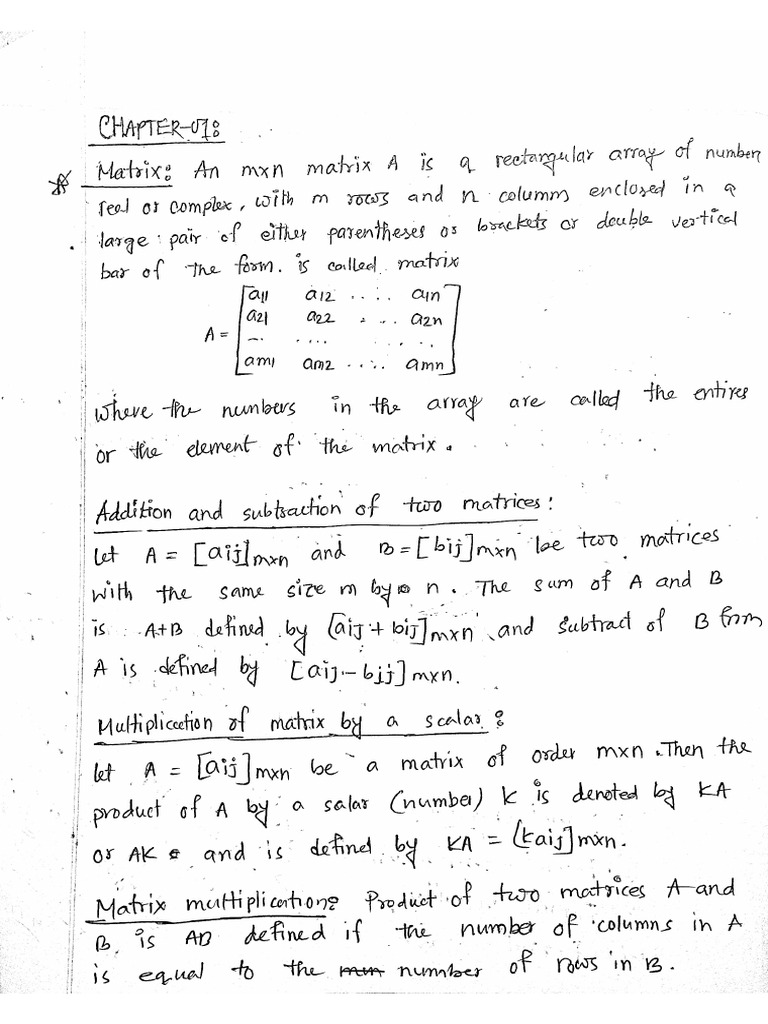 CHAPTER-01:
Matrix: An mxn matrix A is a rectangular array of number
real or complex, with m rows and n columns enclosed in a
large pair of either parentheses or brackets or double vertical
bar of the form. is called matrix
A = [a11 a12 .... a1n
a21 a22 .... a2n
... .... ......
am1 am2 ..... amn]
where the numbers in the array are called the entires
or the element of the matrix.
Addition and subtraction of two matrices:
let A = [aij]mxn and B = [bij]mxn be two matrices
with the same size m by n. The sum of A and B
is A+B defined by [aij + bij]mxn and subtract of B from
A is defined by [aij - bij]mxn.
Multiplication of matrix by a scalar:
let A = [aij]mxn be a matrix of order mxn. Then the
product of A by a salar (number) K is denoted by KA
or AK and is defined by KA = [kaij]mxn.
Matrix multiplication: Product of two matrices A and
B is AB defined if the number of columns in A
is equal to the number of rows in B.